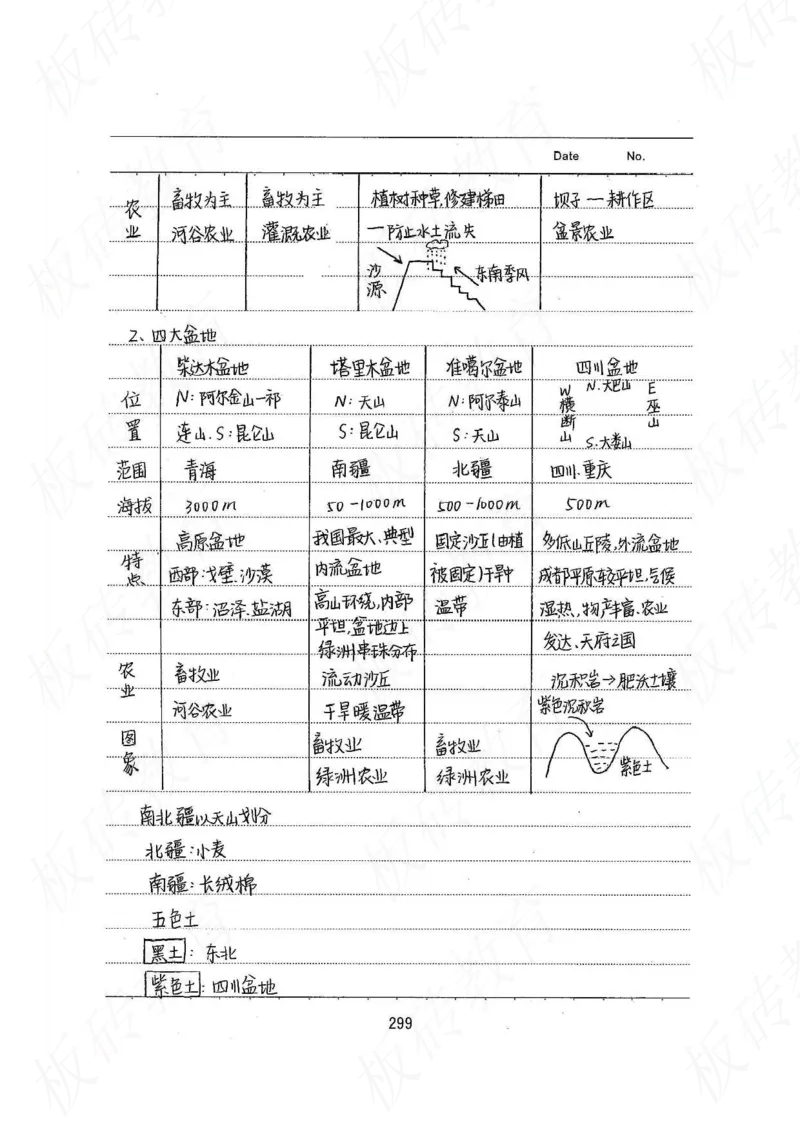 Date No.
农业 畜牧为主 畜牧为主 植树种草,修建梯田 坝子—耕作区
河谷农业 灌溉农业 —防止水土流失 盆景农业
沙源 东南季风
2、四大盆地
柴达木盆地 塔里木盆地 准噶尔盆地 四川盆地
位置 N:阿尔金山—祁 N:天山 N:阿尔泰山 W横断山 N.大巴山 E巫山
连山.S:昆仑山 S:昆仑山 S:天山 S.大娄山
范围 青海 南疆 北疆 四川.重庆
海拔 3000m 50-1000m 500-1000m 500m
特点 高原盆地 我国最大、典型 固定沙丘(由植 多低山丘陵,外流盆地
西部:戈壁.沙漠 内流盆地 被固定)干旱中 成都平原较平坦,气候
东部:沼泽.盐湖 高山环绕,内部 温带 湿热,物产丰富.农业
平坦,盆地边上 发达、天府之国
绿洲串珠分布
农业 畜牧业 流动沙丘 沉积岩→肥沃土壤
河谷农业 干旱暖温带 紫色沉积岩
图象 畜牧业 畜牧业
绿洲农业 绿洲农业 紫色土
南北疆以天山划分
北疆:小麦
南疆:长绒棉
五色土
黑土:东北
紫色土:四川盆地
299
板砖教育